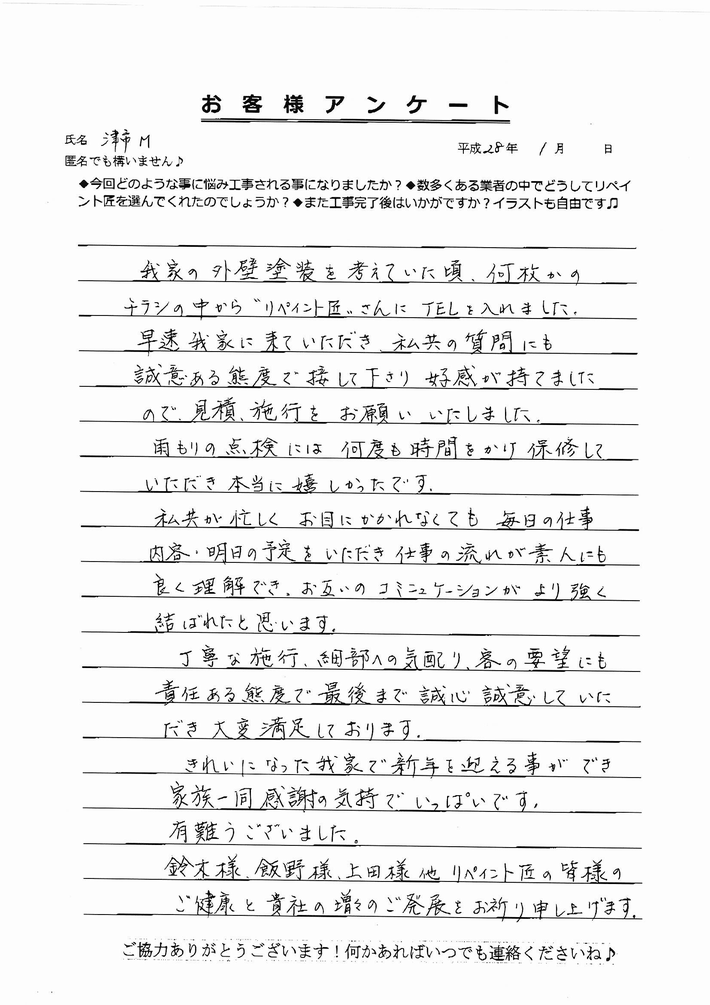 お客様アンケート
氏名 津市 M
匿名でも構いません♪
平成28年 1月 日
◆今回どのような事に悩み工事される事になりましたか?◆数多くある業者の中でどうしてリペイ
ント匠を選んでくれたのでしょうか?◆また工事完了後はいかがですか?イラストも自由です♫
我家の外壁塗装を考えていた頃、何枚かの
チラシの中から"リペイント匠"さんにTELを入れました。
早速我家に来ていただき、私共の質問にも
誠意ある態度で接して下さり好感が持てました
ので、見積、施行をお願いいたしました。
雨もりの点検には何度も時間をかけ保修して
いただき本当に嬉しかったです。
私共が忙しくお目にかかれなくても毎日の仕事
内容・明日の予定をいただき仕事の流れが素人にも
良く理解でき、お互いのコミニュケーションがより強く
結ばれたと思います。
丁寧な施行、細部への気配り、客の要望にも
責任ある態度で最後まで誠心誠意していた
だき大変満足しております。
きれいになった我家で新年を迎える事ができ
家族一同感謝の気持でいっぱいです。
有難うございました。
鈴木様、飯野様、上田様他リペイント匠の皆様の
ご健康と貴社の増々のご発展をお祈り申し上げます。
ご協力ありがとうございます!何かあればいつでも連絡くださいね♪